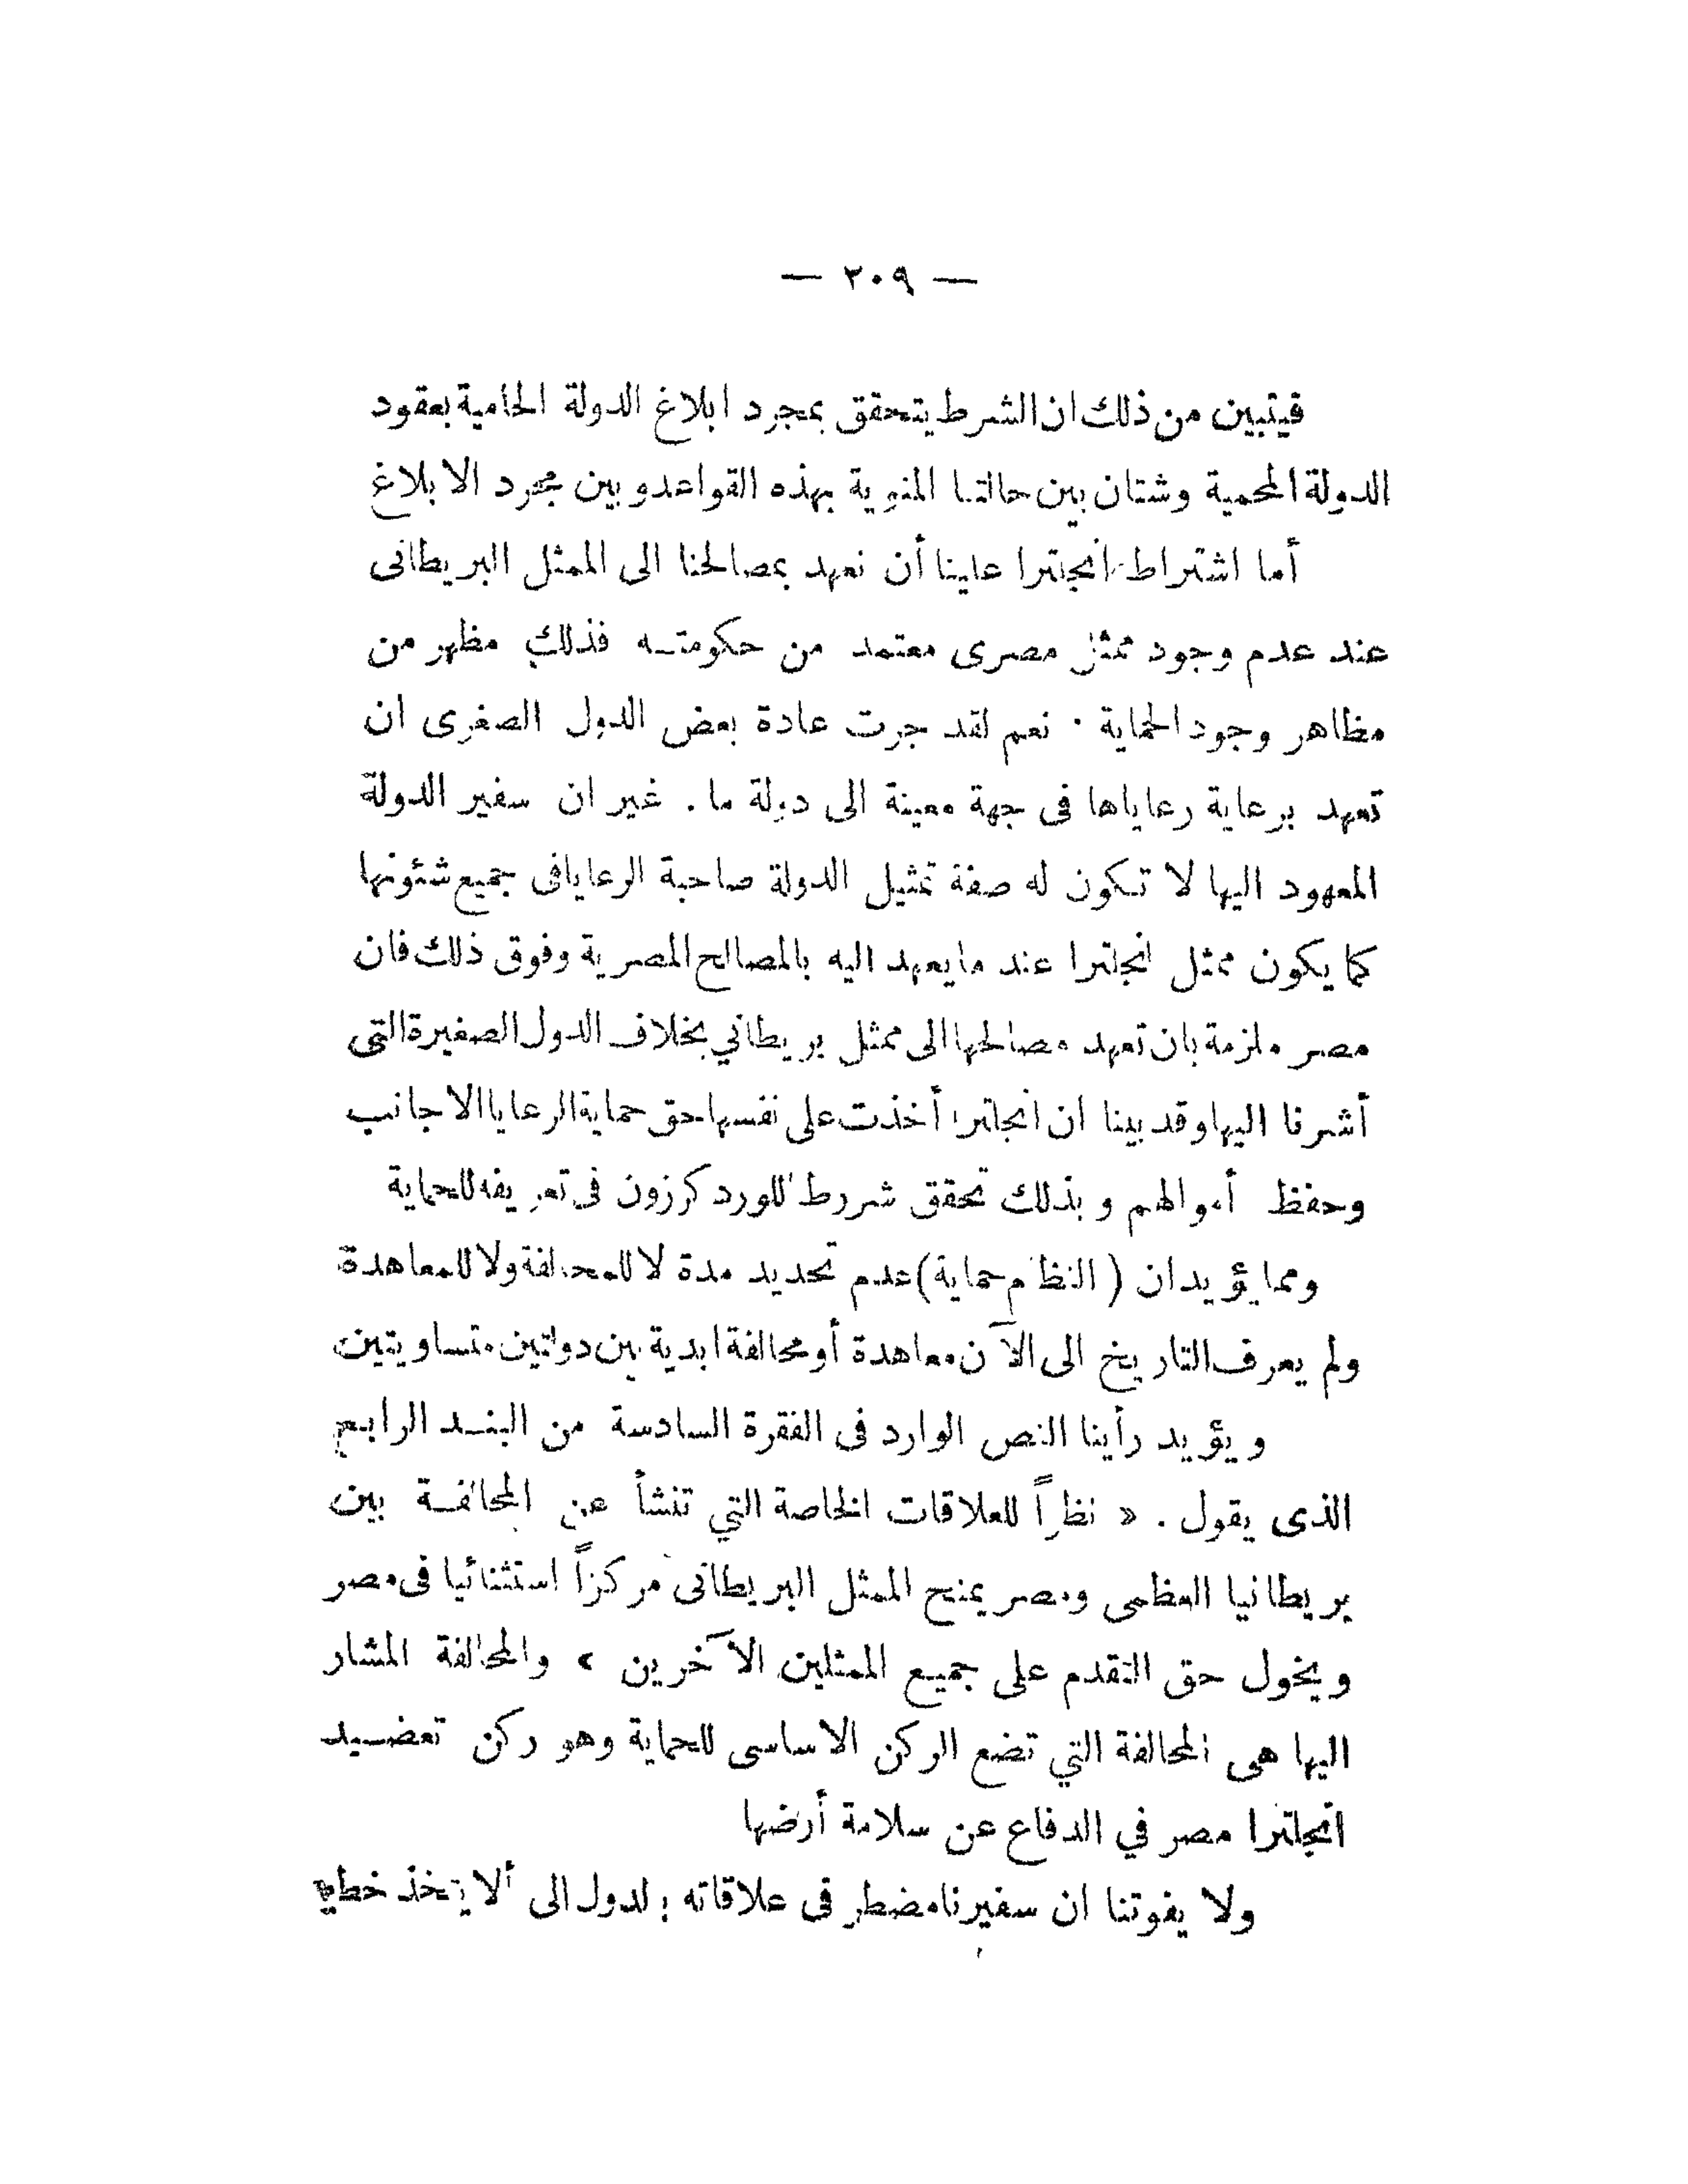 — ٢٠٩ —
فيتبين من ذلك ان الشرط يتحقق بمجرد ابلاغ الدولة الحامية بعقود
الدولة المحمية وشتان بين حالتنا المنوية بهذه القواعد وبين مجرد الابلاغ
أما اشتراط انجلترا علينا أن نعهد بمصالحنا الى الممثل البريطانى
عند عدم وجود ممثل مصرى معتمد من حكومته فذلك مظهر من
مظاهر وجود الحماية . نعم لقد جرت عادة بعض الدول الصغرى ان
تعهد برعاية رعاياها فى جهة معينة الى دولة ما . غير ان سفير الدولة
المعهود اليها لا تكون له صفة تمثيل الدولة صاحبة الرعايا فى جميع شئونها
كما يكون ممثل انجلترا عند ما يعهد اليه بالمصالح المصرية وفوق ذلك فان
مصر ملزمة بان تعهد مصالحها الى ممثل بريطاني بخلاف الدول الصغيرة التى
أشرنا اليها وقد بينا ان انجلترا أخذت على نفسها حق حماية الرعايا الاجانب
وحفظ أموالهم وبذلك تحقق شروط للورد كرزون فى تعريفه للحماية
ومما يؤيد ان ( النظام حماية ) عدم تحديد مدة لا للمحالفة ولا للمعاهدة
ولم يعرف التاريخ الى الآن معاهدة أو محالفة ابدية بين دولتين متساويتين
ويؤيد رأينا النص الوارد فى الفقرة السادسة من البند الرابع
الذى يقول . « نظراً للعلاقات الخاصة التي تنشأ عن المحالفة بين
بريطانيا العظمى ومصر يمنح الممثل البريطانى مركزاً استثنائيا فى مصر
ويخول حق التقدم على جميع الممثلين الآخرين » والمحالفة المشار
اليها هى المحالفة التي تضع الركن الاساسى للحماية وهو ركن تعضيد
انجلترا مصر في الدفاع عن سلامة أرضها
ولا يفوتنا ان سفيرنا مضطر فى علاقاته بالدول الى ألا يتخذ خطة